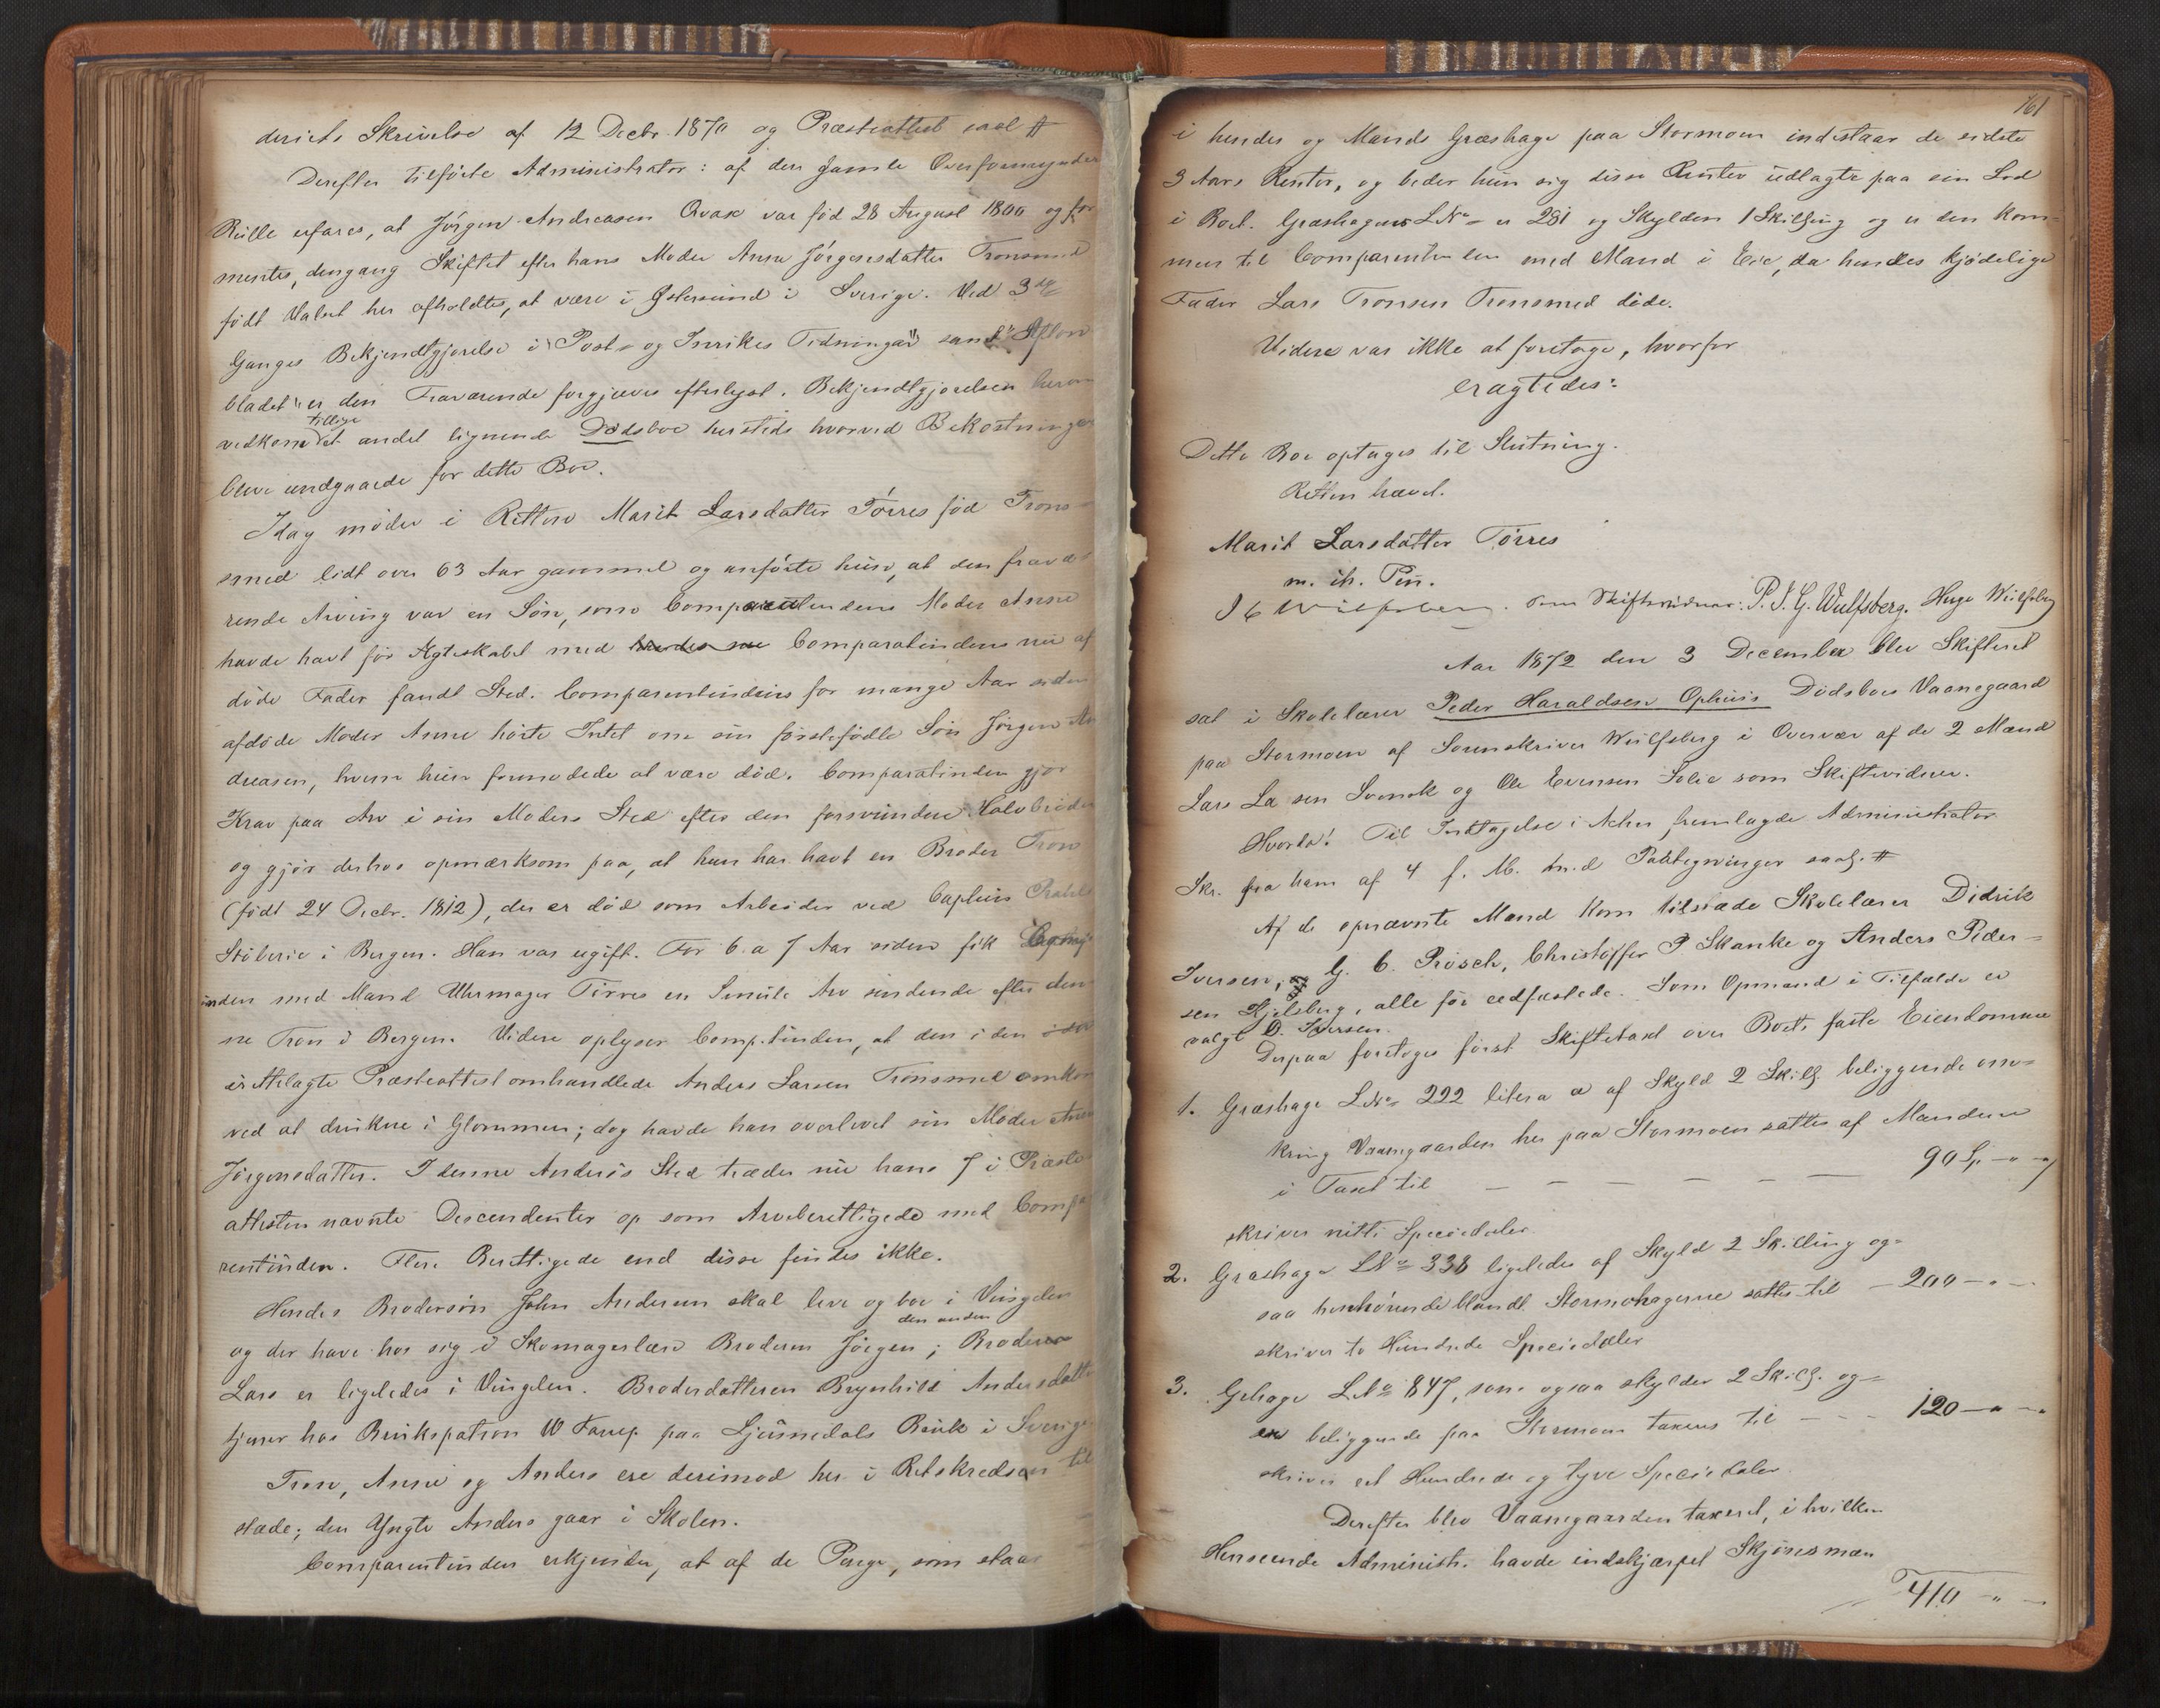 deriets Skrivelse af 12 Decbr. 1870 og Præsteattest saal #
Derefter tilførte Administrator: af den gamle Overformynder
Rulle erfares, at Jørgen Andreasen Qvak var fød 28 August 1800 og for
mentes, dengang Skiftet efter hans Moder Anne Jørgensdatter Tronsmed
født Valset her afholdtes, at være i Østersund i Sverige. Ved 3de
Ganges Bekjendtgjørelse i "Post- og Inrikes Tidningar" samt "Afton
bladet" er den Fraværende forgjæves efterlyst. Bekjendtgjørelsen herom
vedkom tillige et andet lignende Dødsboe hersteds hvorved Bekostninger
bleve undgaaede for dette Boe.
Idag møder i Retten Marit Larsdatter Tørres fød Trons-
smed lidt over 63 Aar gammel og anførte hun, at den fravæ
rende Arving var en Søn, som Comparentindens Moder Anne
havde havt før Ægteskabet med Comparatindens nu af
døde Fader fandt Sted. Comparentindens for mange Aar siden
afdøde Moder Anne hørte Intet om sin førstefødte Søn Jørgen An
dreasen, hvem hun formodede at være død. Comparatinden gjør
Krav paa Arv i sin Moders Sted efter den forsvundne Halvbroder
og gjør derhos opmærksom paa, at hun har havt en Broder Tron
(født 24 Decbr. 1812), der er død som Arbeider ved Captein
Støberie i Bergen. Han var ugift. For 6 a 7 Aar siden fik Comp
inden med Mand Uhrmager Tørres en Smule Arv sendende efter den
ne Tron i Bergen. Videre oplyser Comp.tinden, at den i den
irettelagte Præsteattest omhandlede Anders Larsen Tronsmed omkom
ved at drukne i Glommen; dog havde han overlevet sin Moder Anne
Jørgensdatter. I denne Anders's Sted træder nu hans 7 i Præste
attesten nævnte Descendenter op som Arveberettigede med Compa
rentinden. Flere Berettigede end disse findes ikke.
Hendes Brodersøn John Andersen skal leve og boe i Vingelen
og der have hos sig i Skomagerlære Broderen Jørgen; den anden Broder
Lars er ligeledes i Vingelen. Broderdatteren Brynhild Andersdatter
tjener hos Brukspatron W Farup paa Ljusnedals Bruk i Sverige
Tron, Anne og Anders ere derimod her i Retskredsen til
stæde; den Yngste Anders gaar i Skolen.
Comparentinden erkjender, at af de Penge, som staar
161
i hendes og Mands Græshage paa Stormoen indestaar de sidste
3 Aars Renter, og beder hun sig disse Renter udlagte paa sin Lod
i Boet. Græshagens LNo er 281 og Skylden 1 Skilling og er den kom-
men til Comparentinden med Mand i Eie, da hendes kjødelige
Fader Lars Tronsen Tronsmed døde.
Videre var ikke at foretage, hvorfor
eragtedes:
Dette Boe optages til Slutning.
Retten hævet.
Marit Larsdatter Tørres
m. ih. Pen.
Wulfsberg. Som Skiftevidner: P. J. G. Wulfsberg. Hugo Wulfsberg
Aar 1872 den 3 December blev Skifteret
sat i Skolelærer Peder Haraldsen Ophuus Dødsboes Vaanegaard
paa Stormoen af Sorenskriver Wulfsberg i Overvær af de 2 Mænd
Lars La sen Svensk og Ole Evensen Solie som Skiftevidner.
Hvorda! Til Indtagelse i Acten fremlagde Administrator
Skr. fra ham af 4 f. M. med Paategninger saal. #
Af de opnævnte Mænd kom tilstæde Skolelærer Didrik
Iversen, G. C. Prøsch, Christoffer P Skanke og Anders Peder-
sen Hjelsberg, alle før eedfæstede. Som Opmand i Tilfælde er
valgt D. Iversen.
Derpaa foretoges først Skiftetaxt over Boets faste Eiendomme
1. Græshage LNo 222 litera a af Skyld 2 Skilg. beliggende om-
kring Vaanegaarden her paa Stormoen sattes af Mændene
i Taxt til — — — — — — 90 Sp. — " —
skriver nitti Speciedaler.
2. Græshage LNo 338 ligeledes af Skyld 2 Skilling og-
saa henhørende blandt Stormohagerne sattes til — 200 — " —
skriver to Hundrede Speciedaler
3. Grhage LNo 847, som ogsaa skylder 2 Skilg. og
er beliggende paa Stormoen taxeres til — — 120 — " —
skriver et Hundrede og tyve Speciedaler
Derefter blev Vaanegaarden taxeret, i hvilken
Henseende Administr. havde indskjærpet Skjønsmæn
410 — " —